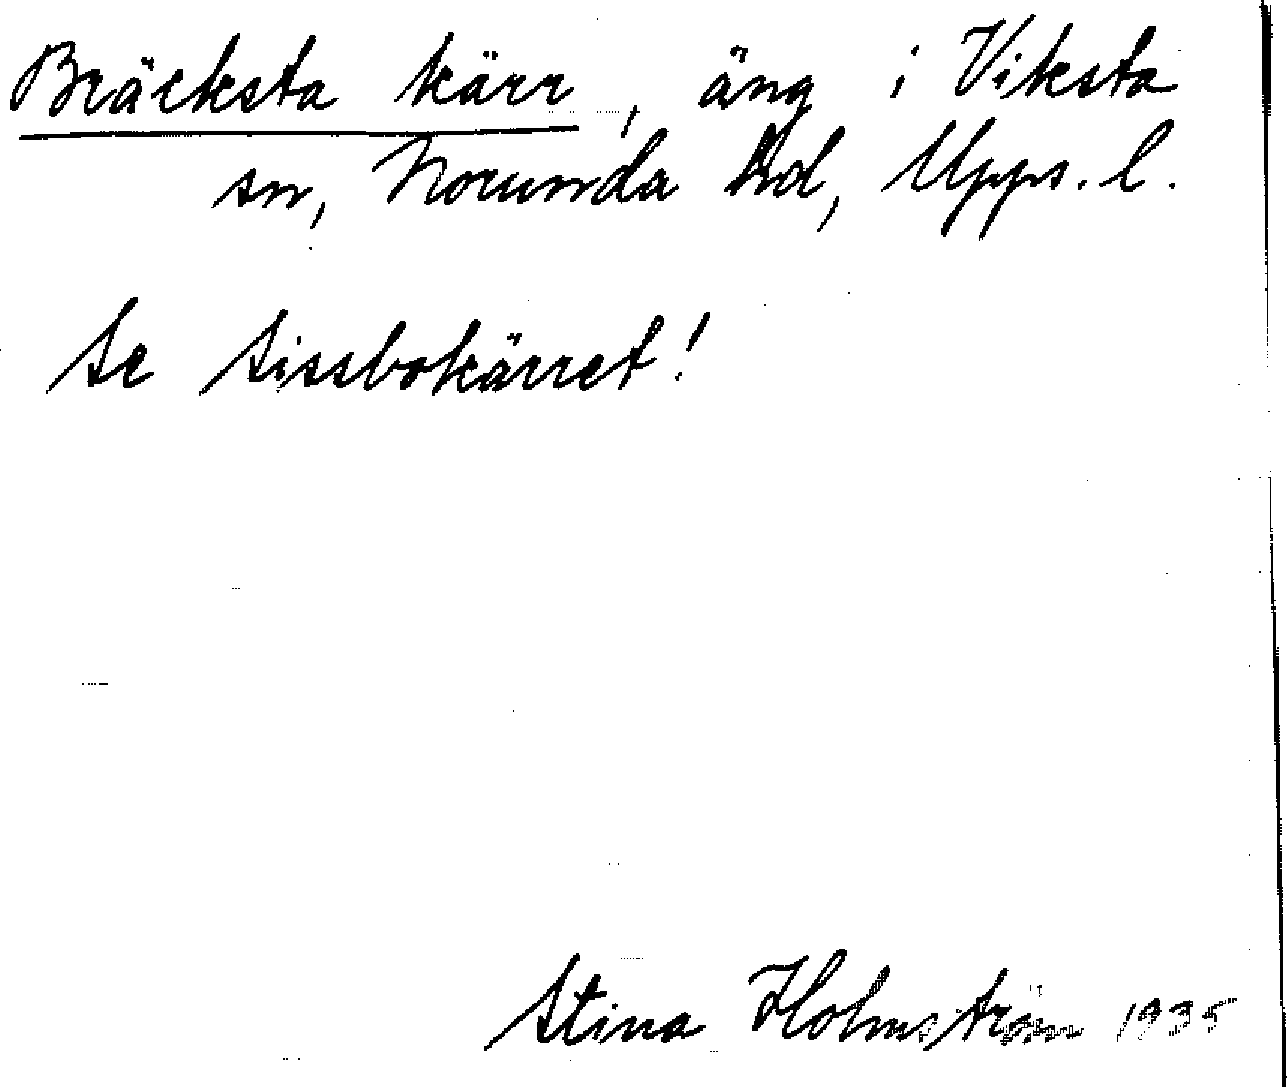 Bräcksta kärr, äng i Viksta
sn, Norunda hd, Upps. l.
Se Sissbokärret!
Stina Holmström 1935